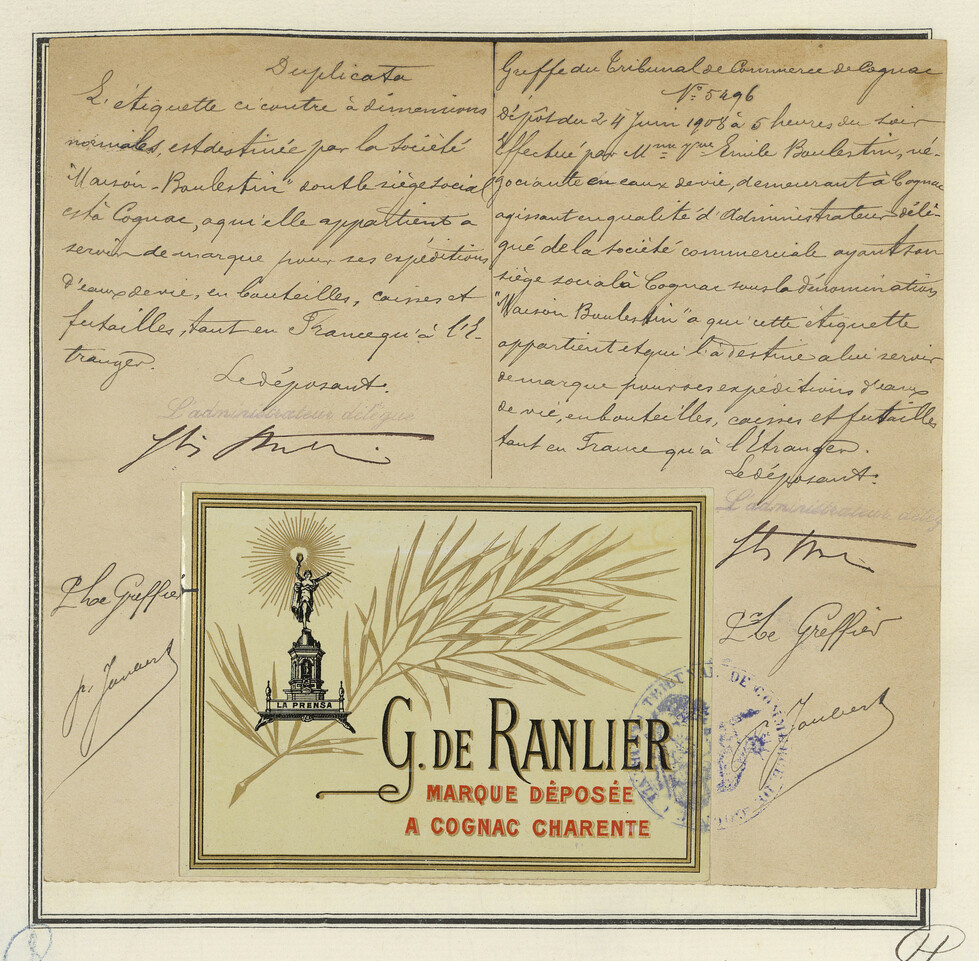 Duplicata
L'étiquette ci contre à dimensions
normales, est destinée par la société
"Maison-Boulestin" dont le siège social
est à Cognac, a qui elle appartient a
servir de marque pour ses expéditions
d'eaux de vie, en bouteilles, caisses et
futailles, tant en France qu'à l'E-
tranger.
Le déposant.
L'administrateur délégué
Greffe du Tribunal de Commerce de Cognac
N° 5496
Dépôt du 24 Juin 1908 à 5 heures du soir
Effectué par Emile Boulestin, né-
gociante en eaux de vie, demeurant à Cognac
agissant en qualité d'Administrateur délé-
gué de la société commerciale ayant son
siège social à Cognac sous la dénomination
"Maison Boulestin" a qui cette étiquette
appartient et qui l'a destine a lui servir
de marque pour ses expéditions d'eaux
de vie, en bouteilles, caisses et futailles
tant en France qu'à l'Etranger.
Le déposant.
L'administrateur délég
Greffier
p. Joubert
Greffier
Joubert
LA PRENSA
G. DE RANLIER
MARQUE DÉPOSÉE
A COGNAC CHARENTE
TRIBUNAL DE COMMERCE DE